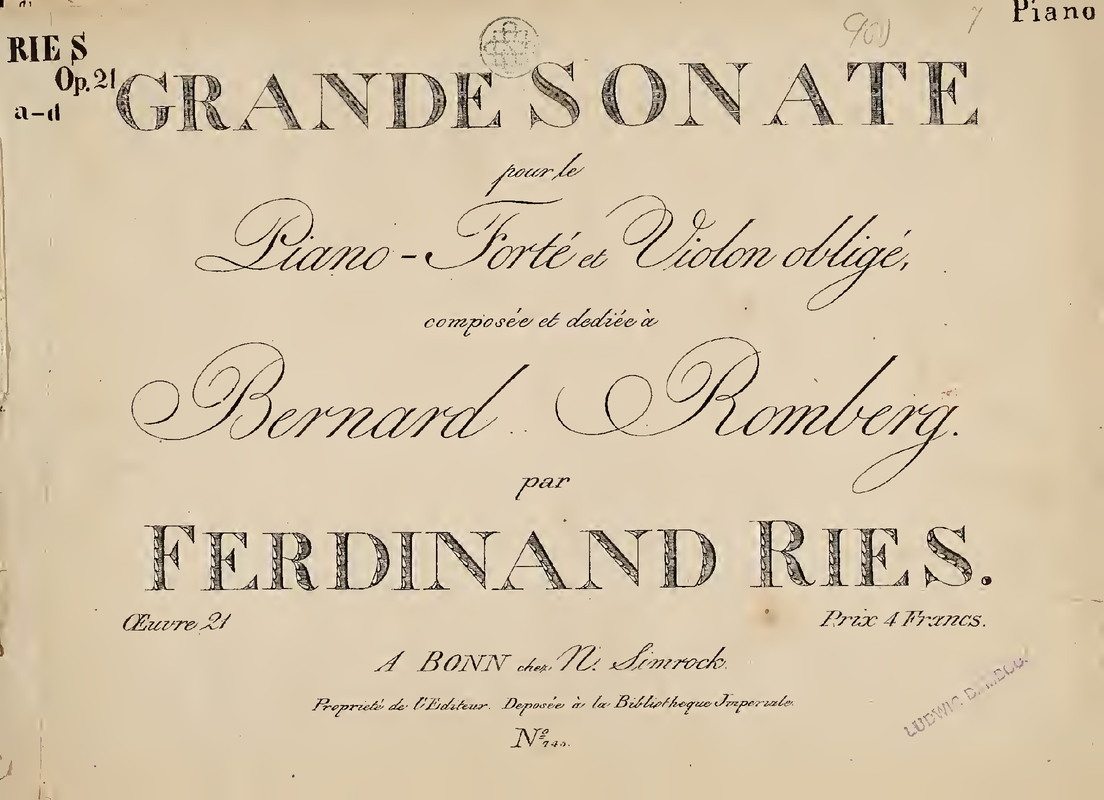 Piano
RIES
Op. 21
a-d
GRANDE SONATE
pour le
Piano-Forté et Violon obligé,
composée et dediée à
Bernard Romberg.
par
FERDINAND RIES.
Œuvre 21
Prix 4 Francs.
A BONN chez N. Simrock.
Proprieté de l'Editeur. Deposée à la Bibliotheque Imperiale.
Nº
LUDWIG